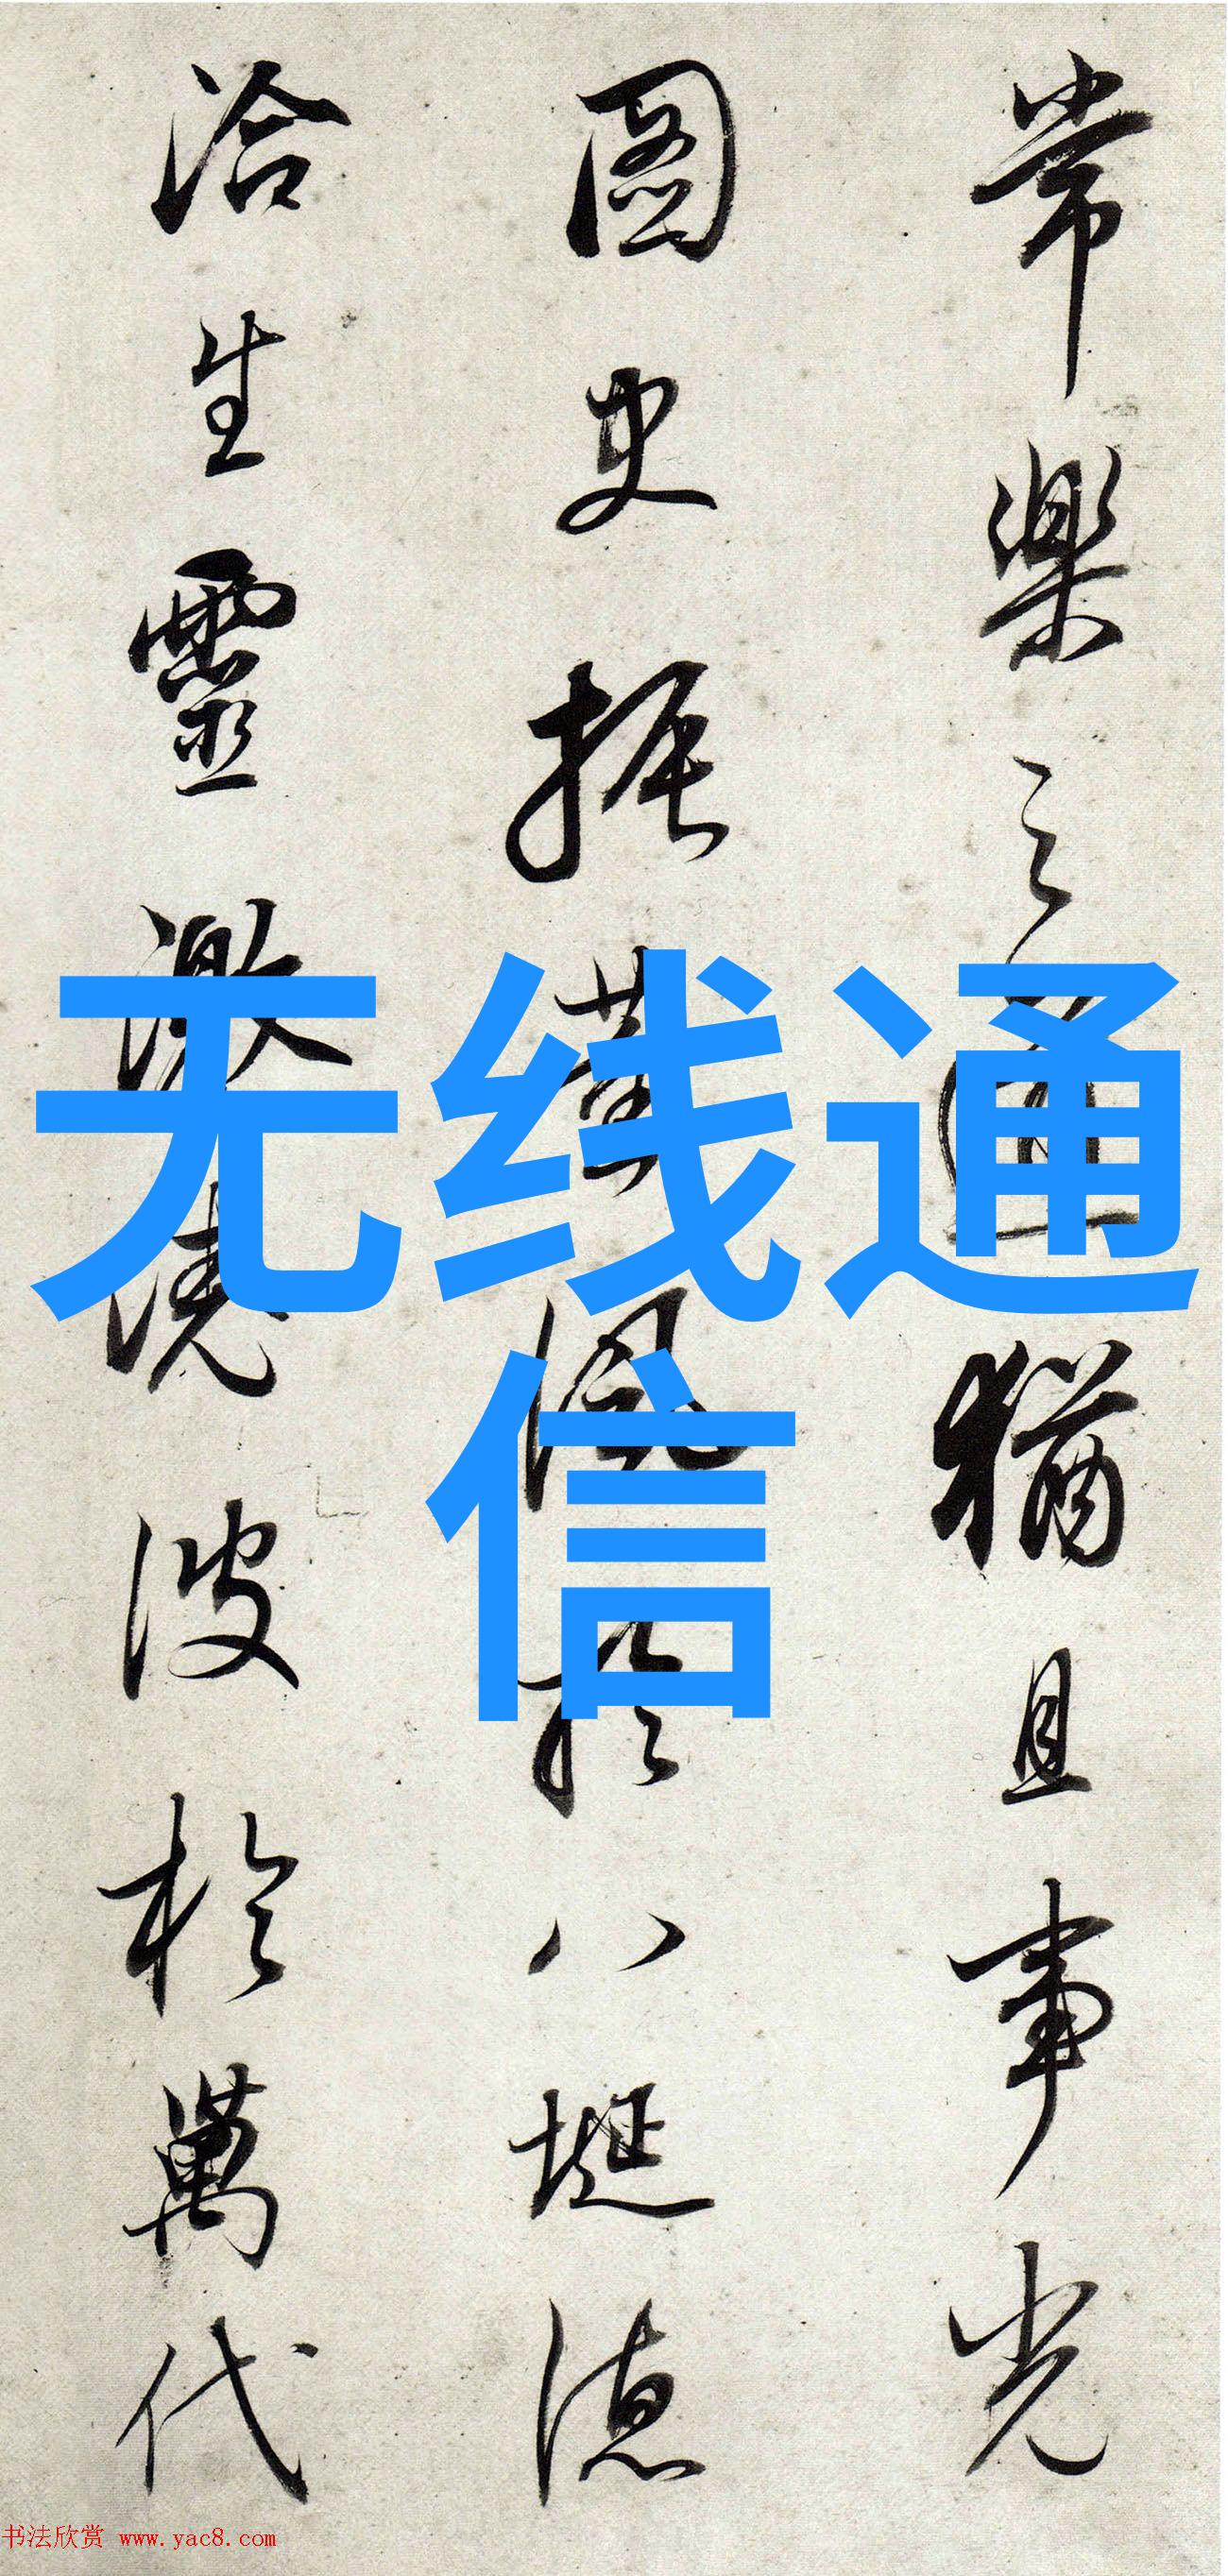 常樂之猶且事光
圖史振風於八埏德
洽生靈激澆波於萬代
无线通
信
书法欣赏 www.yac8.com